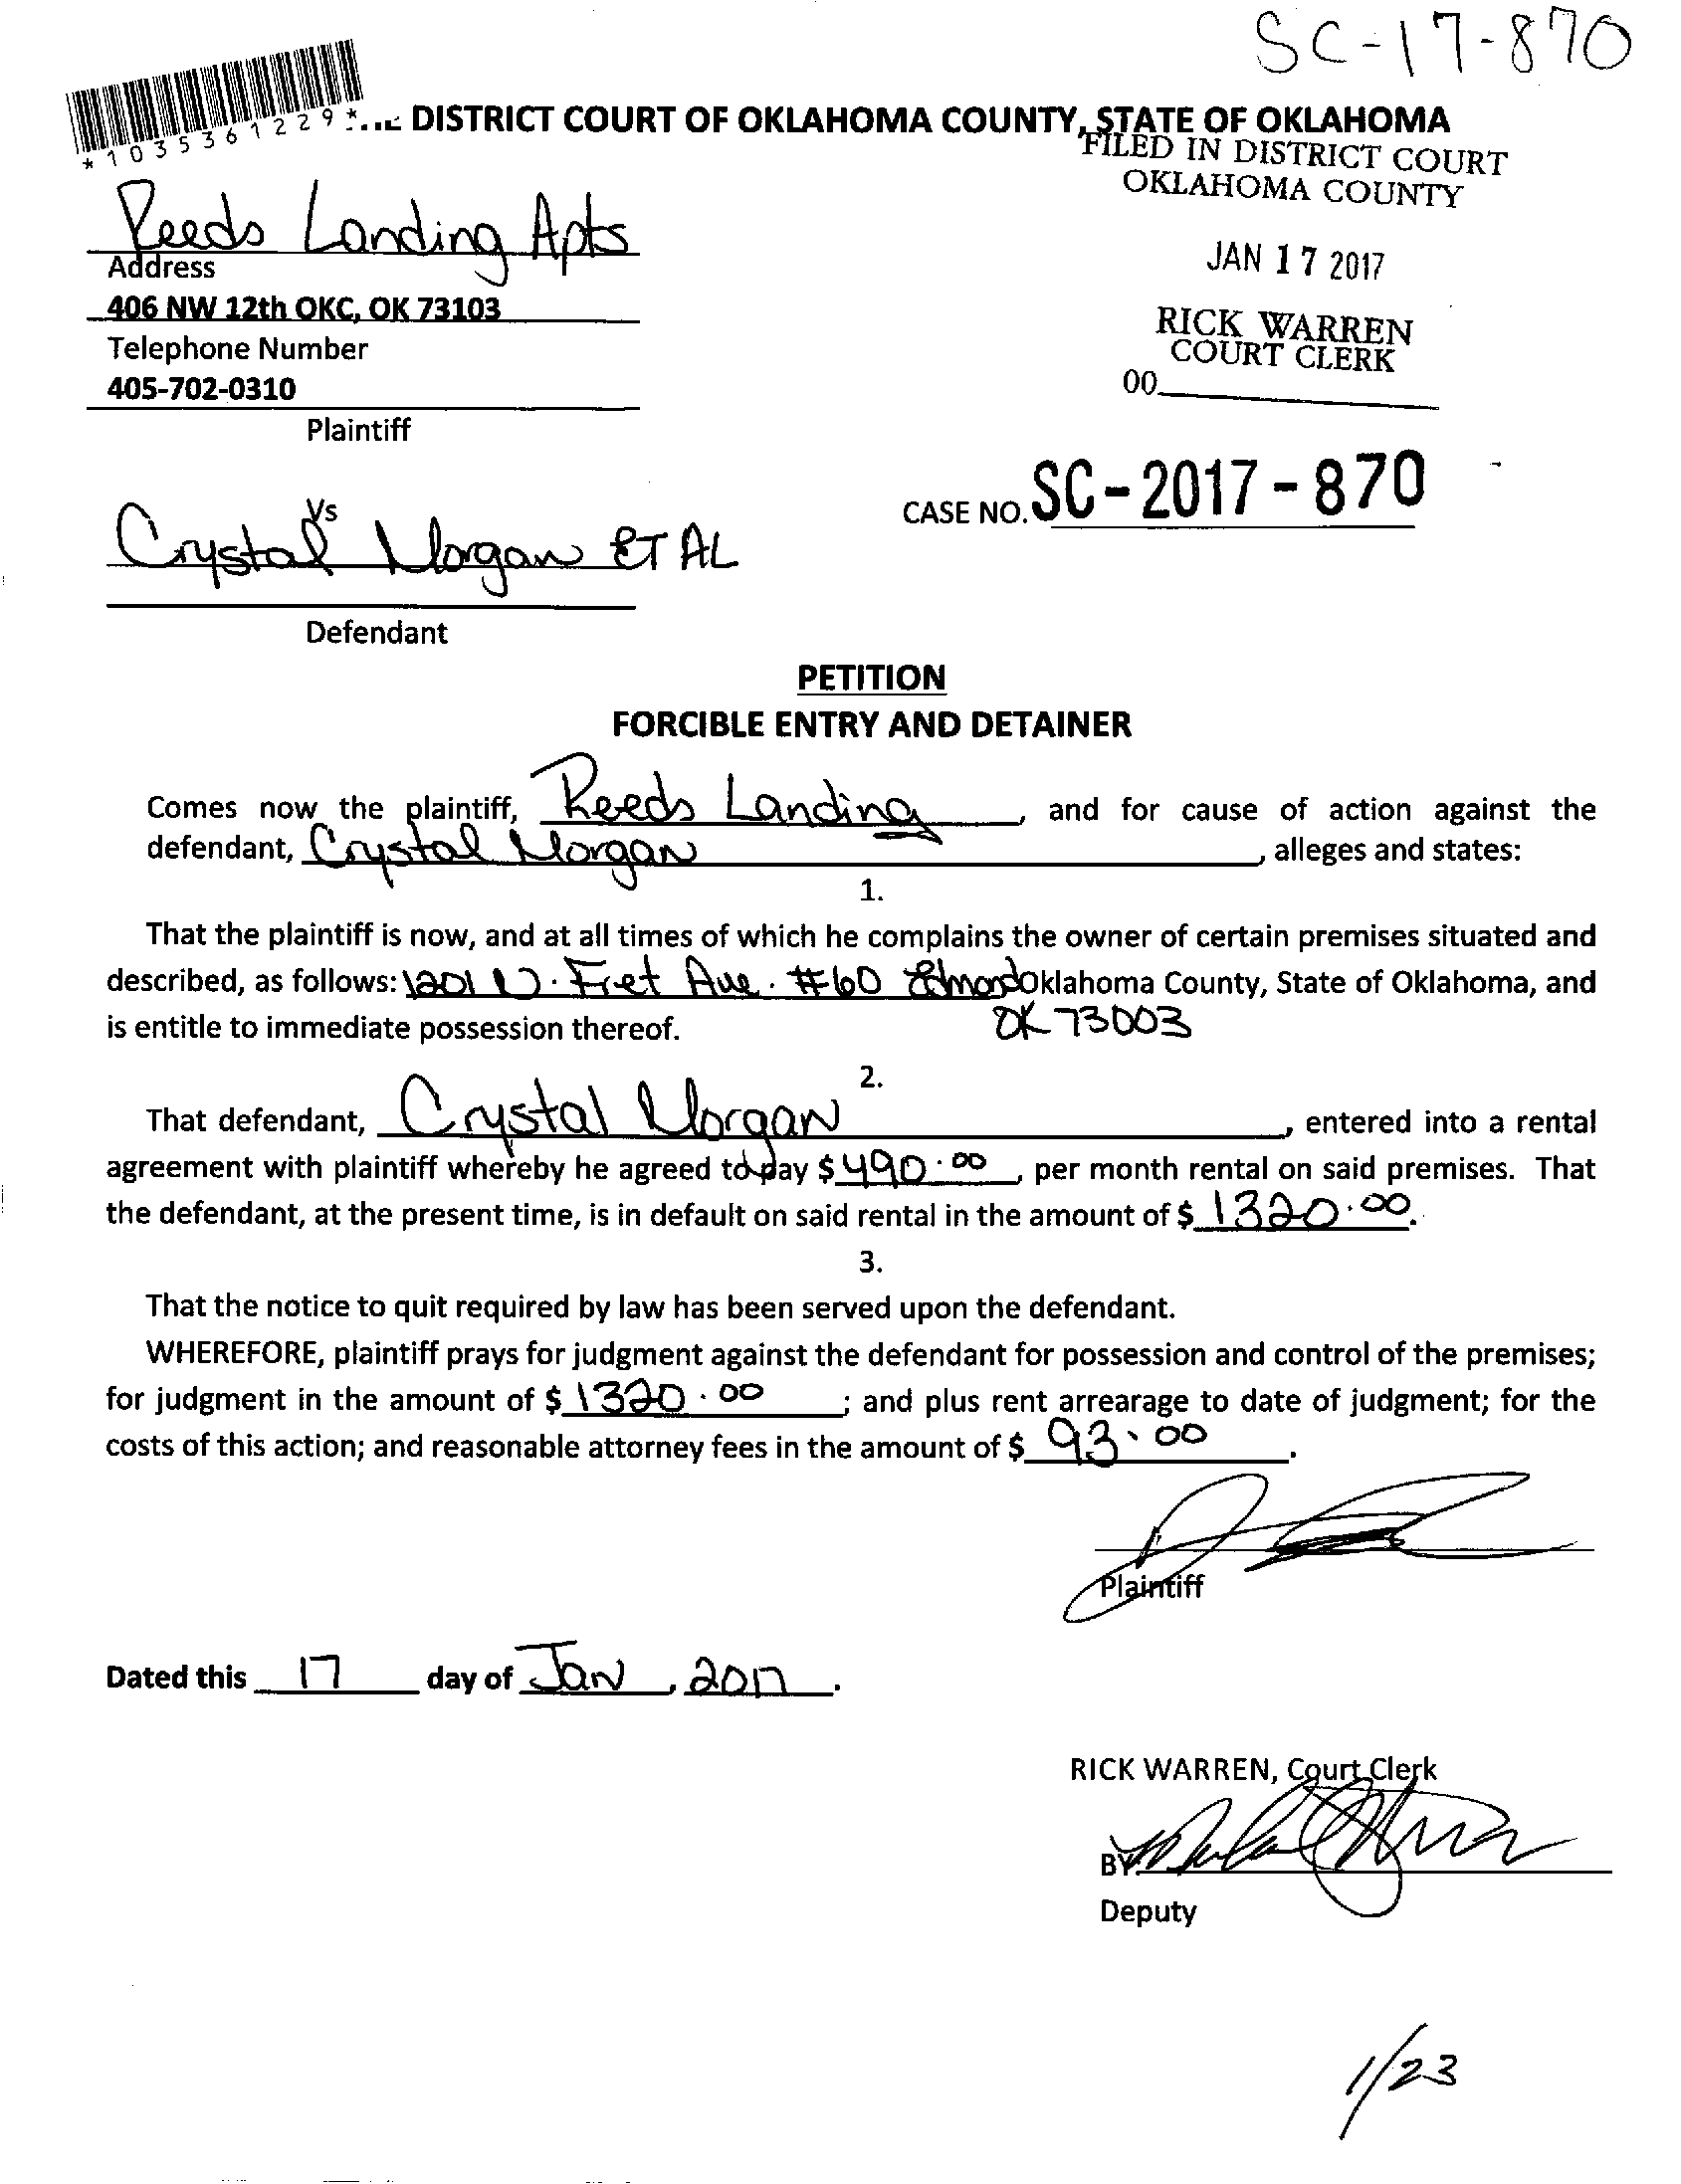 SC-17-870
*1035361229*
DISTRICT COURT OF OKLAHOMA COUNTY, STATE OF OKLAHOMA
FILED IN DISTRICT COURT
OKLAHOMA COUNTY
JAN 17 2017
RICK WARREN
COURT CLERK
00
Reeds Landing Apts
Address
406 NW 12th OKC, OK 73103
Telephone Number
405-702-0310
Plaintiff
CASE NO. SC-2017-870
Vs
Crystal Morgan ET AL
Defendant
PETITION
FORCIBLE ENTRY AND DETAINER
Comes now the plaintiff, Reeds Landing, and for cause of action against the
defendant, Crystal Morgan, alleges and states:
1.
That the plaintiff is now, and at all times of which he complains the owner of certain premises situated and
described, as follows: 1201 N. Fret Ave. #60 Edmond Oklahoma County, State of Oklahoma, and
is entitle to immediate possession thereof. OK 73003
2.
That defendant, Crystal Morgan, entered into a rental
agreement with plaintiff whereby he agreed to pay $ 490.00, per month rental on said premises. That
the defendant, at the present time, is in default on said rental in the amount of $ 1320.00.
3.
That the notice to quit required by law has been served upon the defendant.
WHEREFORE, plaintiff prays for judgment against the defendant for possession and control of the premises;
for judgment in the amount of $ 1320.00; and plus rent arrearage to date of judgment; for the
costs of this action; and reasonable attorney fees in the amount of $ 93.00.
Plaintiff
Dated this 17 day of Jan, 2017.
RICK WARREN, Court Clerk
BY:
Deputy
1/23